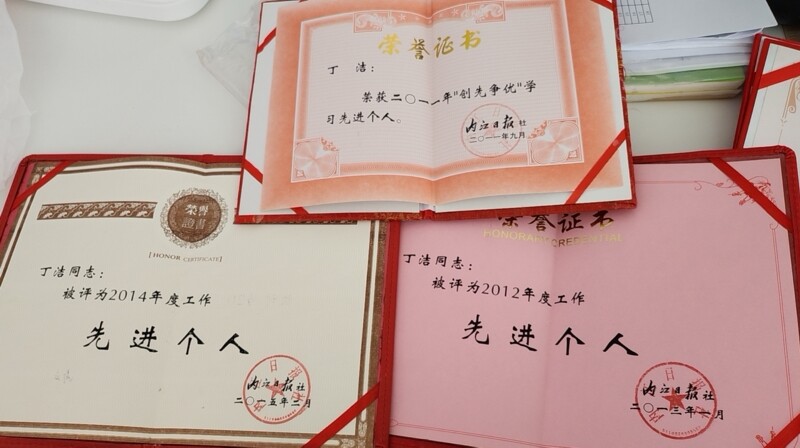 荣誉证书
丁 洁：
荣获二〇一一年"创先争优"学
习先进个人。
内江日报社
二〇一一年九月
荣誉
證書
[HONOR CERTIFICATE]
丁洁同志：
被评为2014年度工作
先进个人
内江日报社
二〇一五年二月
荣誉证书
HONORARY CREDENTIAL
丁洁同志：
被评为2012年度工作
先进个人
内江日报社
二〇一三年一月